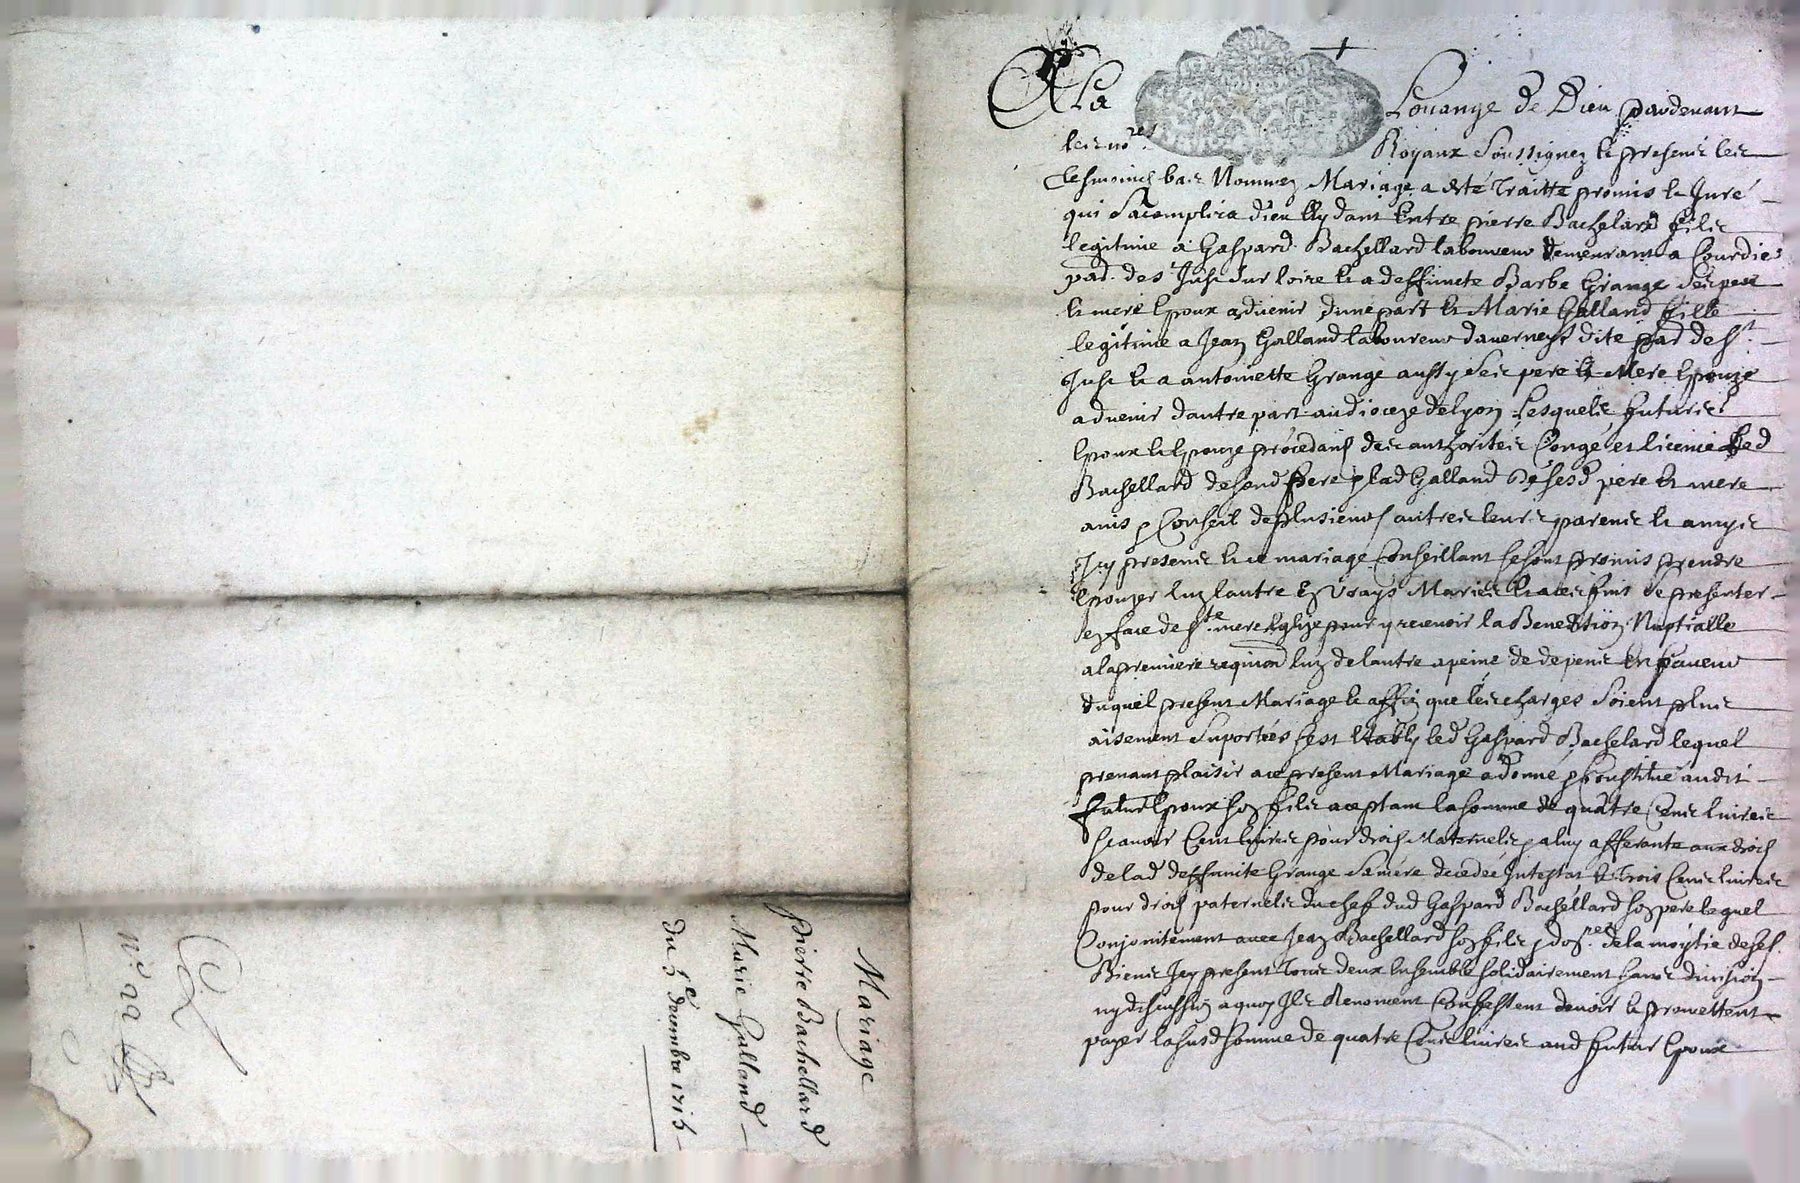 Mariage
Pierre Bachellard
Marie Galland
du 5e decembre 1715
A La Louange de Dieu pardevant
les nores Royaux soussignez et presents les
tesmoins bas nommez Mariage a esté Traitté promis et Juré
qui sacomplira dieu aydant Entre pierre Bachelard fils
legitime a Gaspard Bachellard laboureur demeurant a
pad. des Just sur loire et a deffuncte Barbe Grange ses pere
et mere Epoux advenir dune part et Marie Galland fille
legitime a Jean Galland laboureur dite pad de St
Just et a antoinette Grange aussy ses pere et Mere Epouze
advenir dautre part au dioceze de lyon Lesquels futurs
Epoux et Epouze procedants des authorites Congé et licence led
Bachellard de sond pere et lad Galland de sesd pere et mere
avis et Conseil de plusieurs autres leurs parents et amys
Jcy presents et ce mariage Conseillant se sont promis prendre
Epouzer lun lautre en vrays Maries et a ces fins se presenter
en face de Ste mere Eglize pour y recevoir la Benediction Nuptialle
a la premiere requion lun de lautre a peine de depens En faveur
duquel present Mariage et affin que les charges soient plus
aisement suportées sest Etably led Gaspard Bachelard lequel
prenant plaisir a ce present Mariage a donné et Constitué audit
futur Epoux son fils aceptant la somme de quatre Cents livres
scavoir Cent livres pour droits Maternels a luy afferante aux droits
de lad deffuncte Grange sa mere decedée Intestat et Trois Cents livres
pour droits paternels du chef dud Gaspard Bachellard son pere lequel
Conjointement avec Jean Bachellard son fils dore de la moytie de ses
Biens Jcy present Tous deux Ensemble solidairement sans division
ny discussion a quoy Ils Renoncent Confessent devoir et promettent
payer la susd somme de quatre Cents livres aud futur Epoux